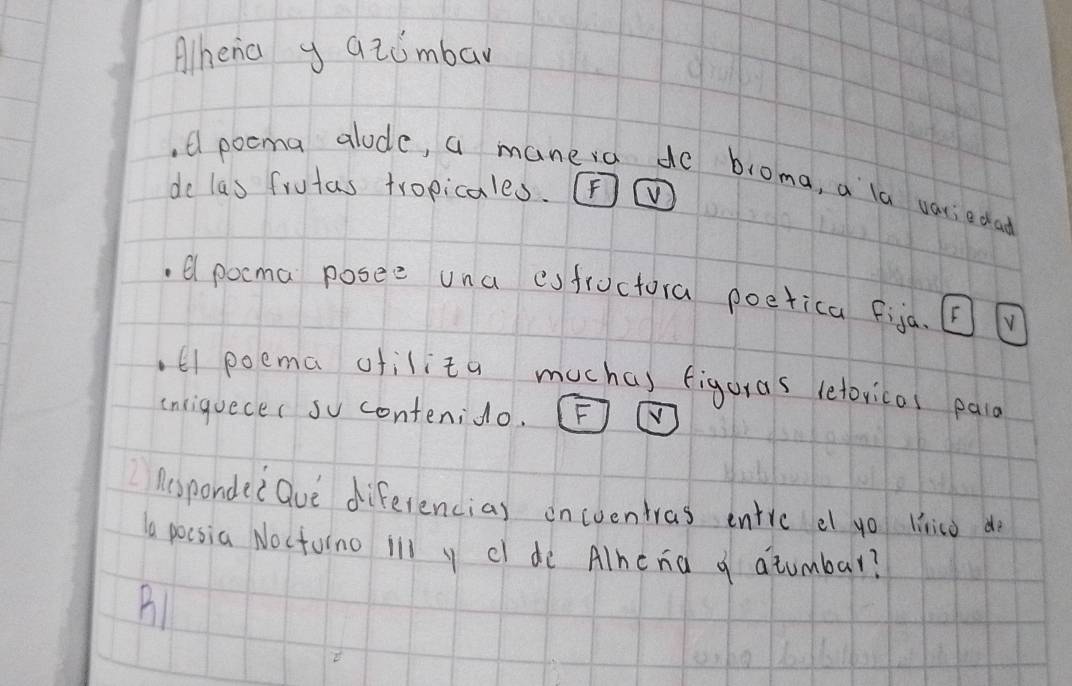 Alheña y azúmbar
. El poema alude, a manera de broma, a la variedad
de las frutas tropicales. F V
. El poema posee una estructura poetica fija. F V
. El poema utiliza muchas figuras retoricas para
enriquecer su contenido. F V
2) Responde ¿Qué diferencias encuentras entre el yo lírico de
la poesia Nocturno III y el de Alheña y ázumbar?
R/